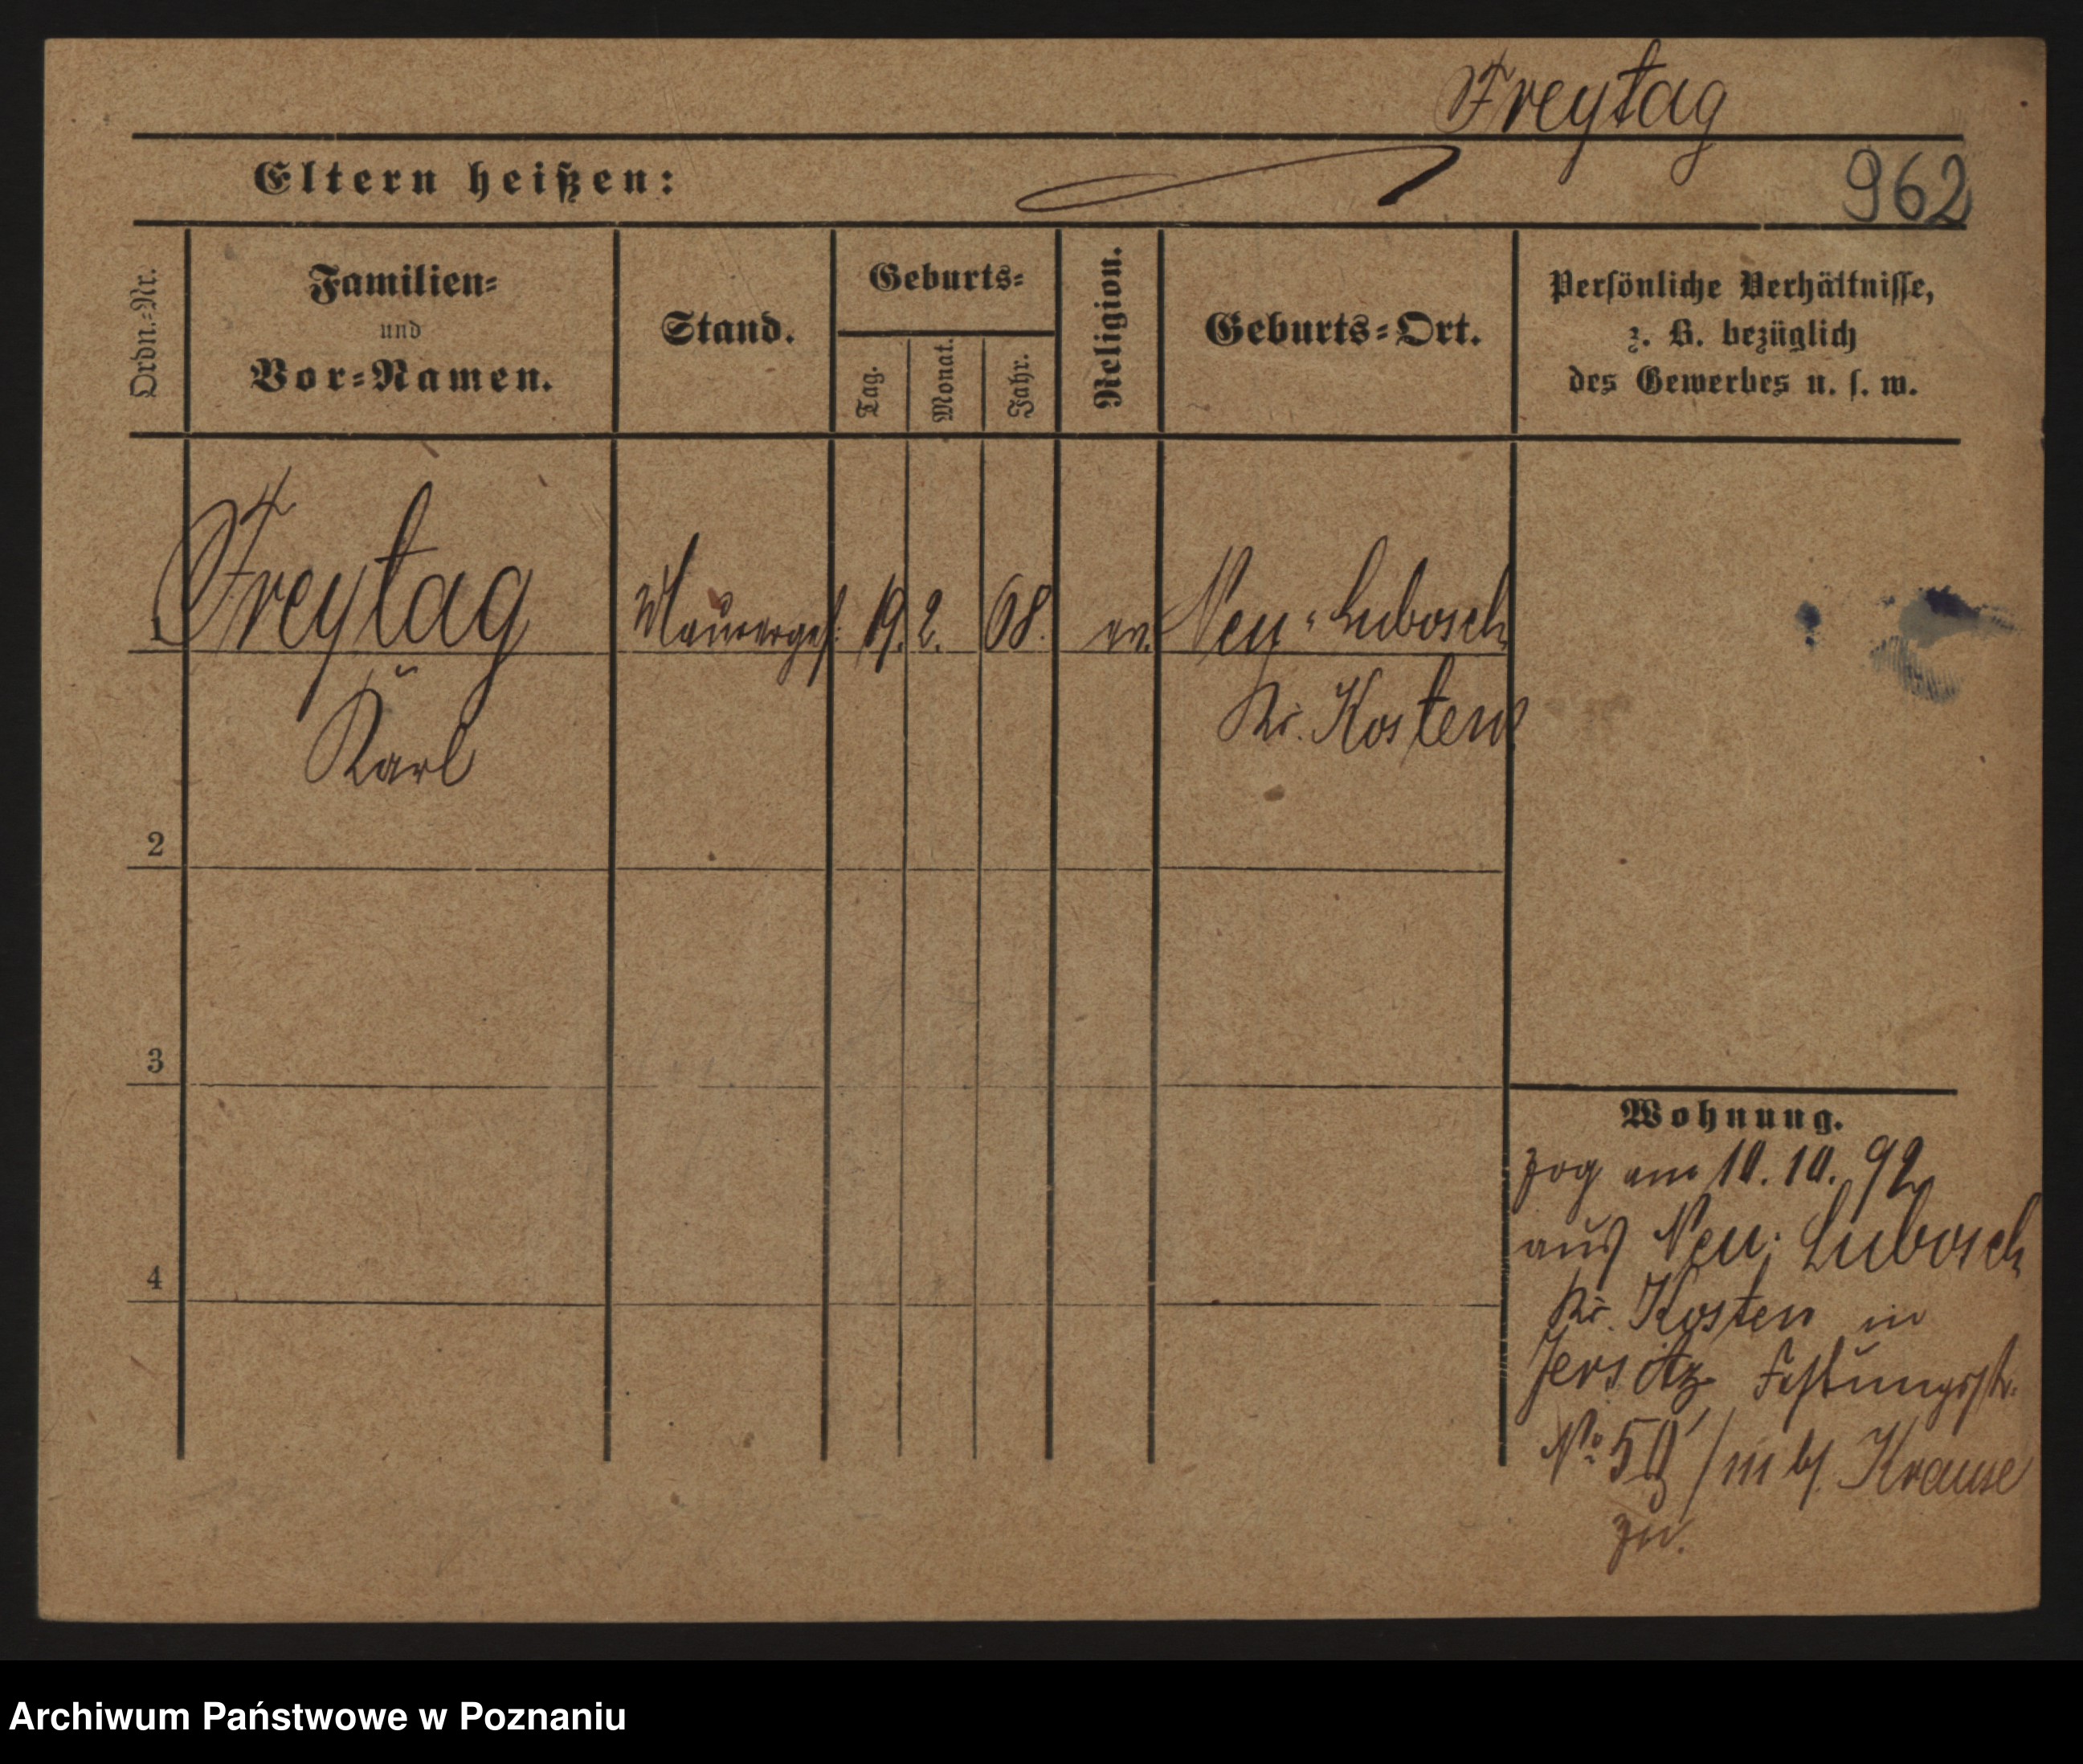 Freytag
Eltern heißen:
962
Ordn.-Nr.
Familien-
und
Vor-Namen.
Stand.
Geburts-
Tag.
Monat.
Jahr.
Religion.
Geburts-Ort.
Persönliche Verhältnisse,
z. B. bezüglich
des Gewerbes u. s. w.
1 Freytag Maurerges: 19. 2. 68. ev. Neu-Lubosch
Karl Kr. Kosten
2
3
4
Wohnung.
zog am 10. 10. 92
aus Neu-Lubosch
Kr. Kosten in
Jersitz Festungsstr.
No 50 / III b/. Krause
zu.
Archiwum Państwowe w Poznaniu